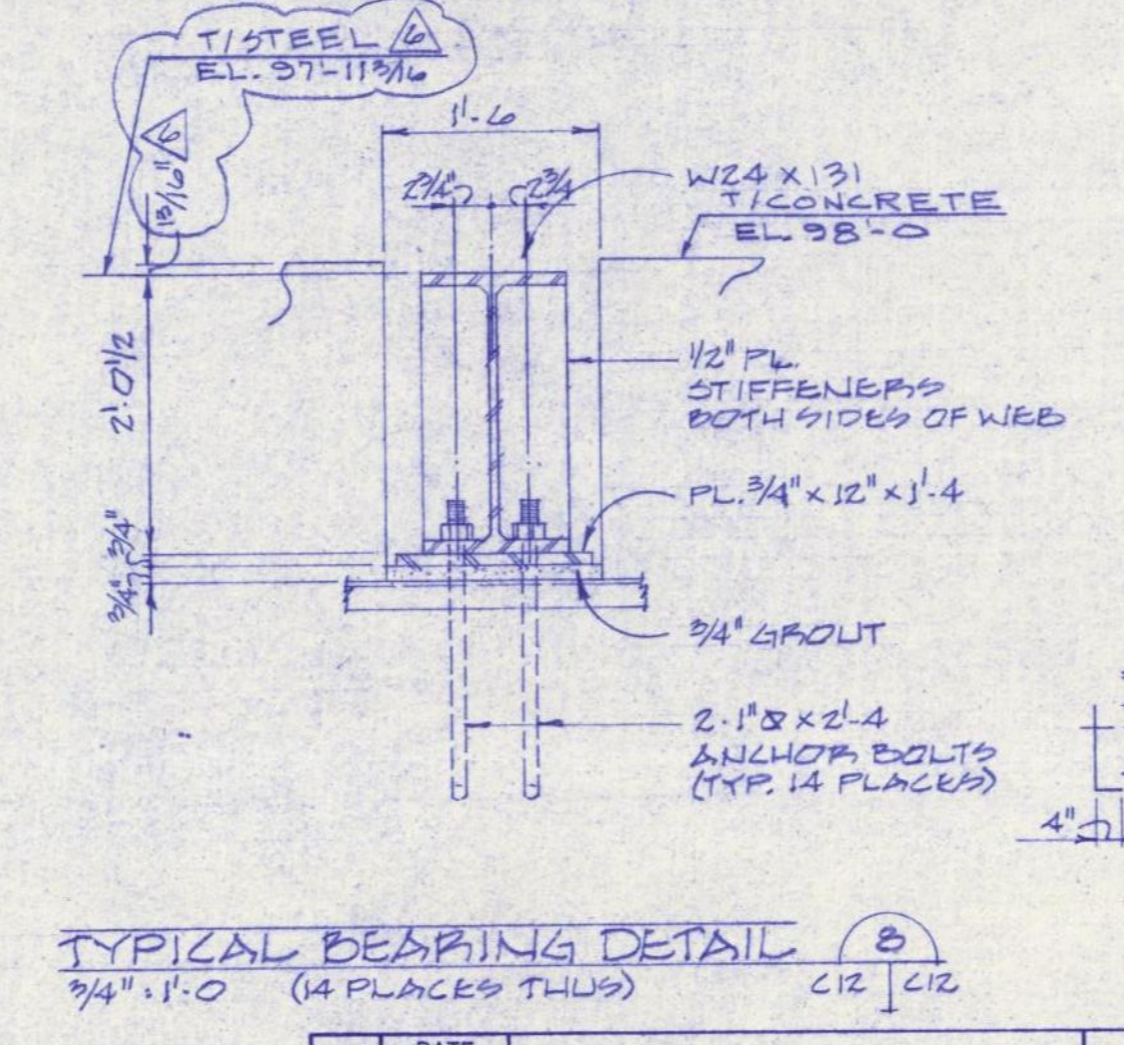 T/STEEL 6
EL. 97'-11 3/16
6
13/16"
1'-6
2 3/4" 2 3/4
W24 X 131
T/CONCRETE
EL. 98'-0
2'-0 1/2
1/2" PL.
STIFFENERS
BOTH SIDES OF WEB
PL. 3/4" x 12" x 1'-4
3/4"
3/4"
3/4" GROUT
2-1"Ø X 2'-4
ANCHOR BOLTS
(TYP. 14 PLACES)
4"
TYPICAL BEARING DETAIL 8
3/4" = 1'-0 (14 PLACES THUS) C12 C12
DATE